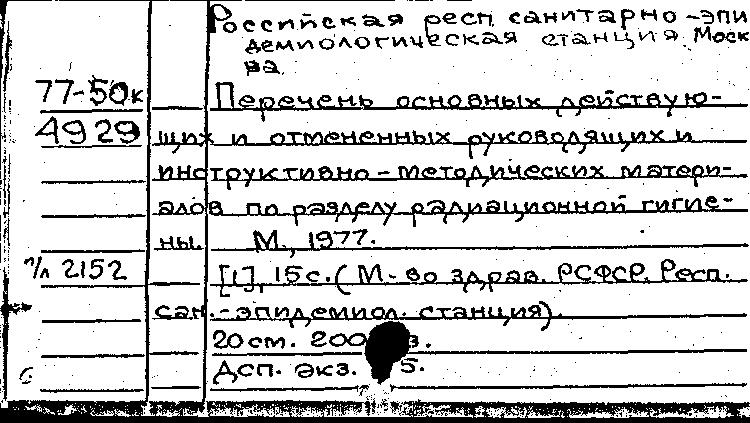 Российская респ. санитарно-эпи
демиологическая станция. Моск
ва
77-50к
4929
Перечень основных действую-
щих и отмененных руководящих и
инструктивно-методических матери-
алов по разделу радиационной гигие-
ны. М., 1977.
п/л 2152
[1], 15с. (М-во здрав. РСФСР. Респ.
сан.-эпидемиол. станция).
20см. 200 з.
Дсп. экз. 5.